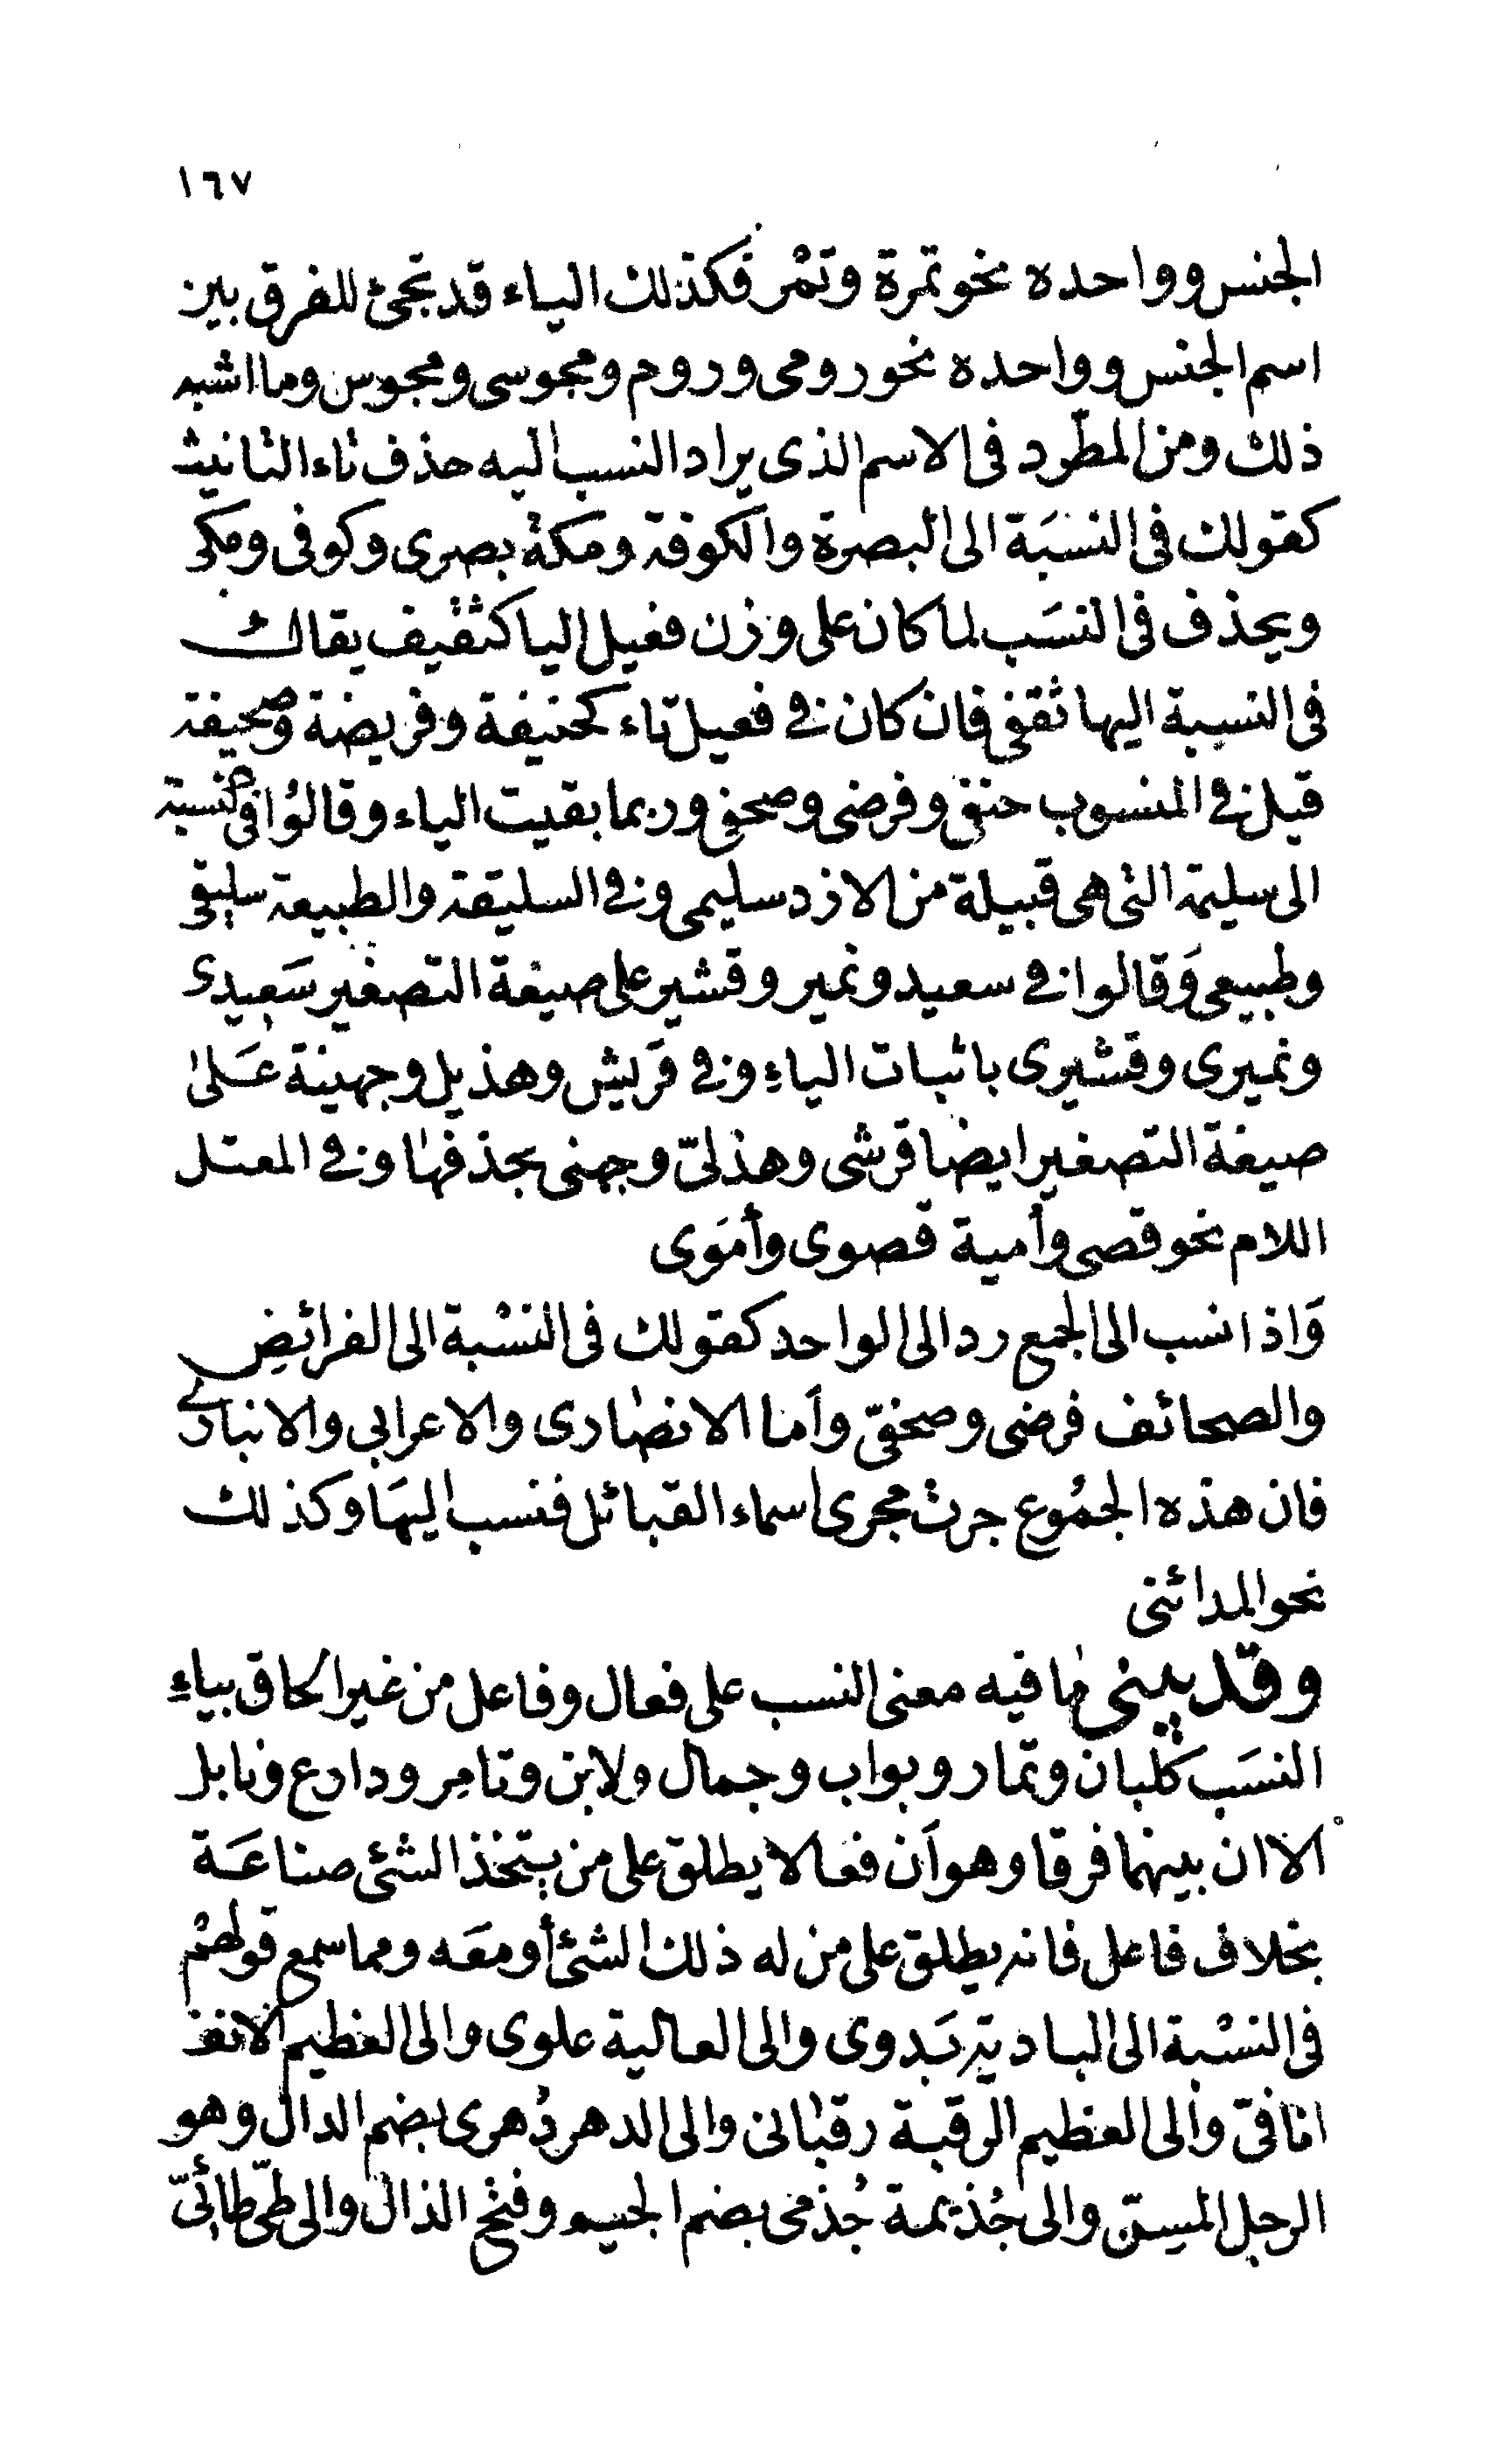 ١٦٧
الجنس وواحده نحو تمرة وتمْر فكذلك الياء قد تجئ للفرق بين
اسم الجنس وواحده نحو رومى وروم ومجوسى ومجوس وما اشبه
ذلك ومن المطّرد فى الاسم الذى يراد النسب اليه حذف تاء التانيث
كقولك فى النسَبة الى البصرة والكوفة ومكة بصرى وكوفى ومكى
ويحذف فى النسَب لما كان على وزن فعيل اليا كثقيف يقال
فى النسبة اليها ثقفى فان كان فى فعيل تاء كحنيفة وفريضة وصحيفة
قيل فى المنسوب حنفى وفرضى وصحفى وربما بقيت الياء وقالوُا فى النسبة
الى سليمة التى هى قبيلة من الازد سليمى وفى السليقة والطبيعة سليقى
وطبيعى وَقالوا فى سعيد ونمير وقشير على صيغة التصغير سَعيدى
ونميرى وقشيرى باثبات الياءِ وفى قَريش وهذيل وجهينة عَلىٰ
صيغة التصغير ايضا قرشى وهذلىّ وجهنى بحذفها وفى المعتل
اللام نحو قصى وأمية قصوى وأمَوى
وَاذا نسب الى الجمع رد الى الواحد كقولك فى النسْبة الى الفرائض
والصحائف فرضى وصحفىّ وأما الانصارى والاعرابى والانبارى
فان هذه الجمُوع جرت مجرى اسماء القبائل فنسب اليهَا وكذلك
نحو المدائنى
وقد يبنى ما فيه معنى النسب على فعال وفاعل من غير الحاق بياءِ
النسَب كلبان وتمار وبواب وجمال ولابن وتامِر ودارع ونابل
الا ان بينهما فرقا وهو أن فعالا يطلق على من يتخذ الشئ صناعَة
بخلاف فاعل فانه يطلق على من له ذلك الشئ أو معَه ومما سمع قولهمْ
فى النسْبة الى البادية بَدوى والى العالية علوى والى العظيم الانف
انافىّ والى العظيم الرقبة رقبانى والى الدهر دُهرى بضم الدال وهو
الرجل المسنّ والى جُذيمة جُذمى بضم الجيم وفتح الذال والى طىّ طائىّ